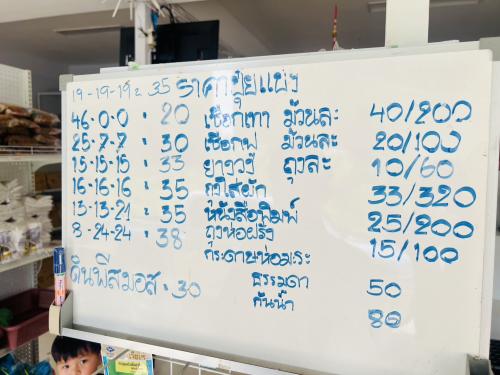 19-19-19 = 35 ราคาปุ๋ยแบ่ง
46-0-0 = 20 เชือกเทา ม้วนละ 40/200
25-7-7 = 30 เชือกฟ ม้วนละ 20/100
15-15-15 = 33 ยางวง ถุงละ 10/60
16-16-16 = 35 ถุงใส่ผัก 33/320
13-13-21 = 35 หนังสือพิมพ์ 25/200
8-24-24 = 38 ถุงห่อฝรั่ง 15/100
กระดาษห่อมะ
ดินพีสมอส = 30 ธรรมดา 50
กันน้ำ 80